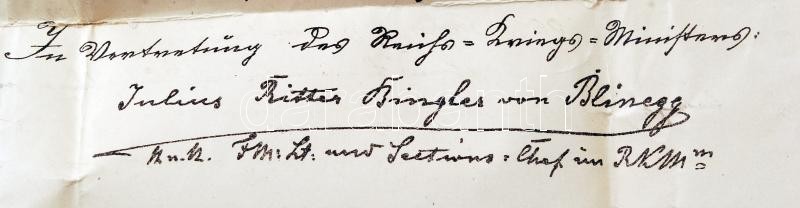 In Vertretung des Reichs=Kriegs=Ministers:
Julius Ritter Kingler von Blinegg
K.u.K. FM:Lt: und Sections=Chef im RKMm